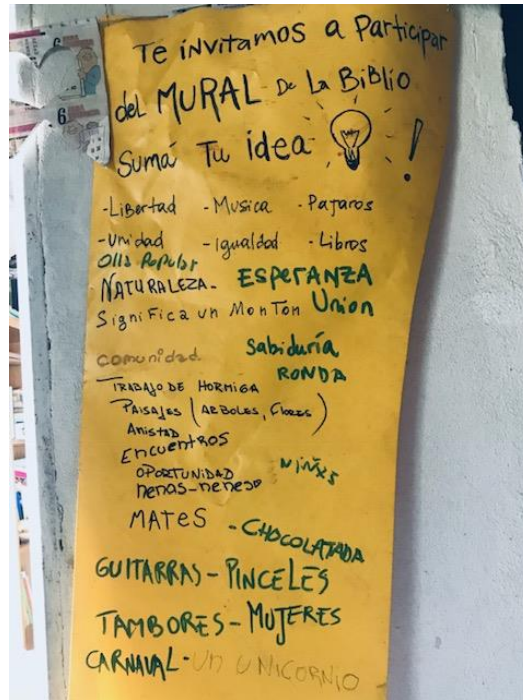 Te invitamos a Participar
del MURAL De La BiBlio
Sumá Tu idea !
-Libertad -Musica -Pajaros
-Unidad -Igualdad -Libros
Olla Popular
NATURALEZA- ESPERANZA
Significa un Monton Union
comunidad Sabiduría
RONDA
TRABAJO DE HORMIGA
PAISAJES (ARBOLES, Flores)
Amistad
Encuentros
OPORTUNIDAD NiÑxs
nenas-nenes
MATES - CHOCOLATADA
GUITARRAS - PINCELES
TAMBORES - MUJERES
CARNAVAL - Un UNICORNIO
6
6